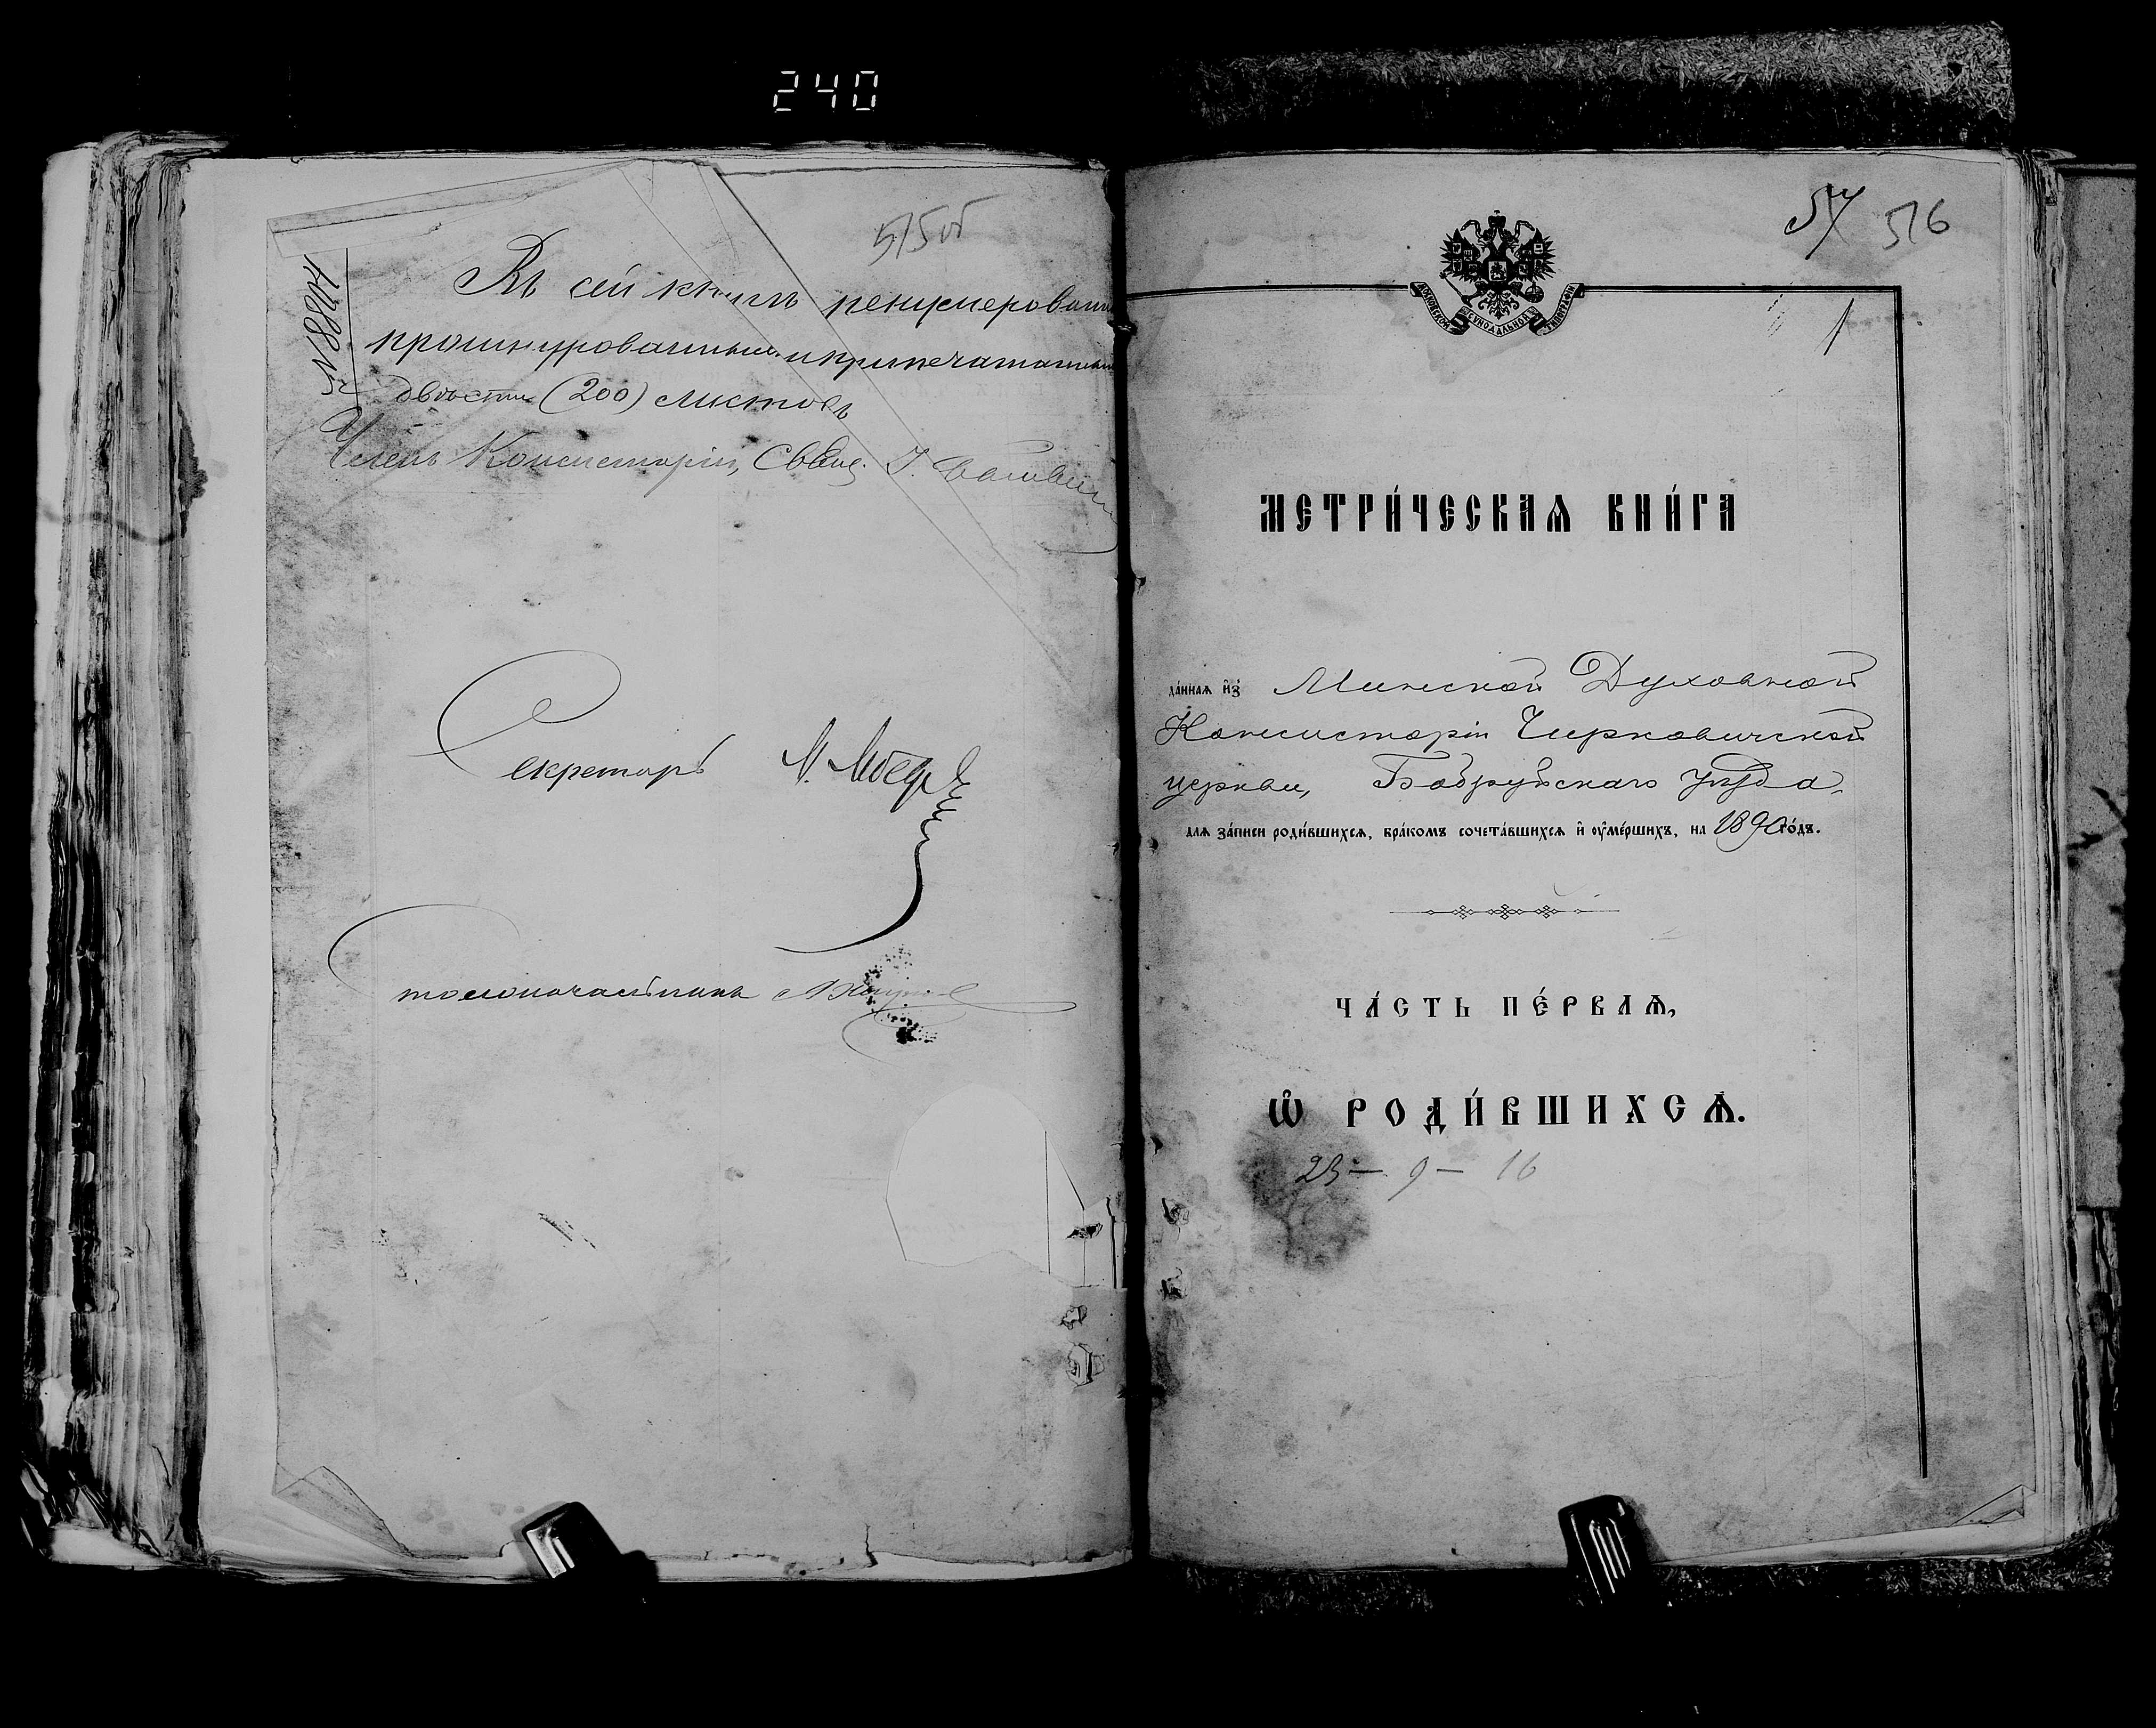 240
515 об
Въ сей книгѣ перенумерованныхъ
прошнурованныхъ и припечатанныхъ
двѣсти (200) листовъ
Членъ Консисторіи, Свящ. І.
Секретарь
Столоначальникъ
57 516
МОСКОВСКОЙ СѴНОДАЛЬНОЙ ТИПОГРАФІИ
1
МЕТРИ́ЧЕСКАѦ КНИ́ГА
да́ннаѧ и҆з̾ Минской Духовной
Консисторіи Чирковичской
церкви, Бобруйскаго уѣзда,
для за́писи роди́вшихсѧ, бра́комъ сочета́вшихсѧ и҆ ᲂу҆ме́ршихъ, на 1890 го́дъ.
ЧА́СТЬ ПЕ́РВАѦ,
Ѡ҆ РОДИ́ВШИХСѦ.
23 — 9 — 16